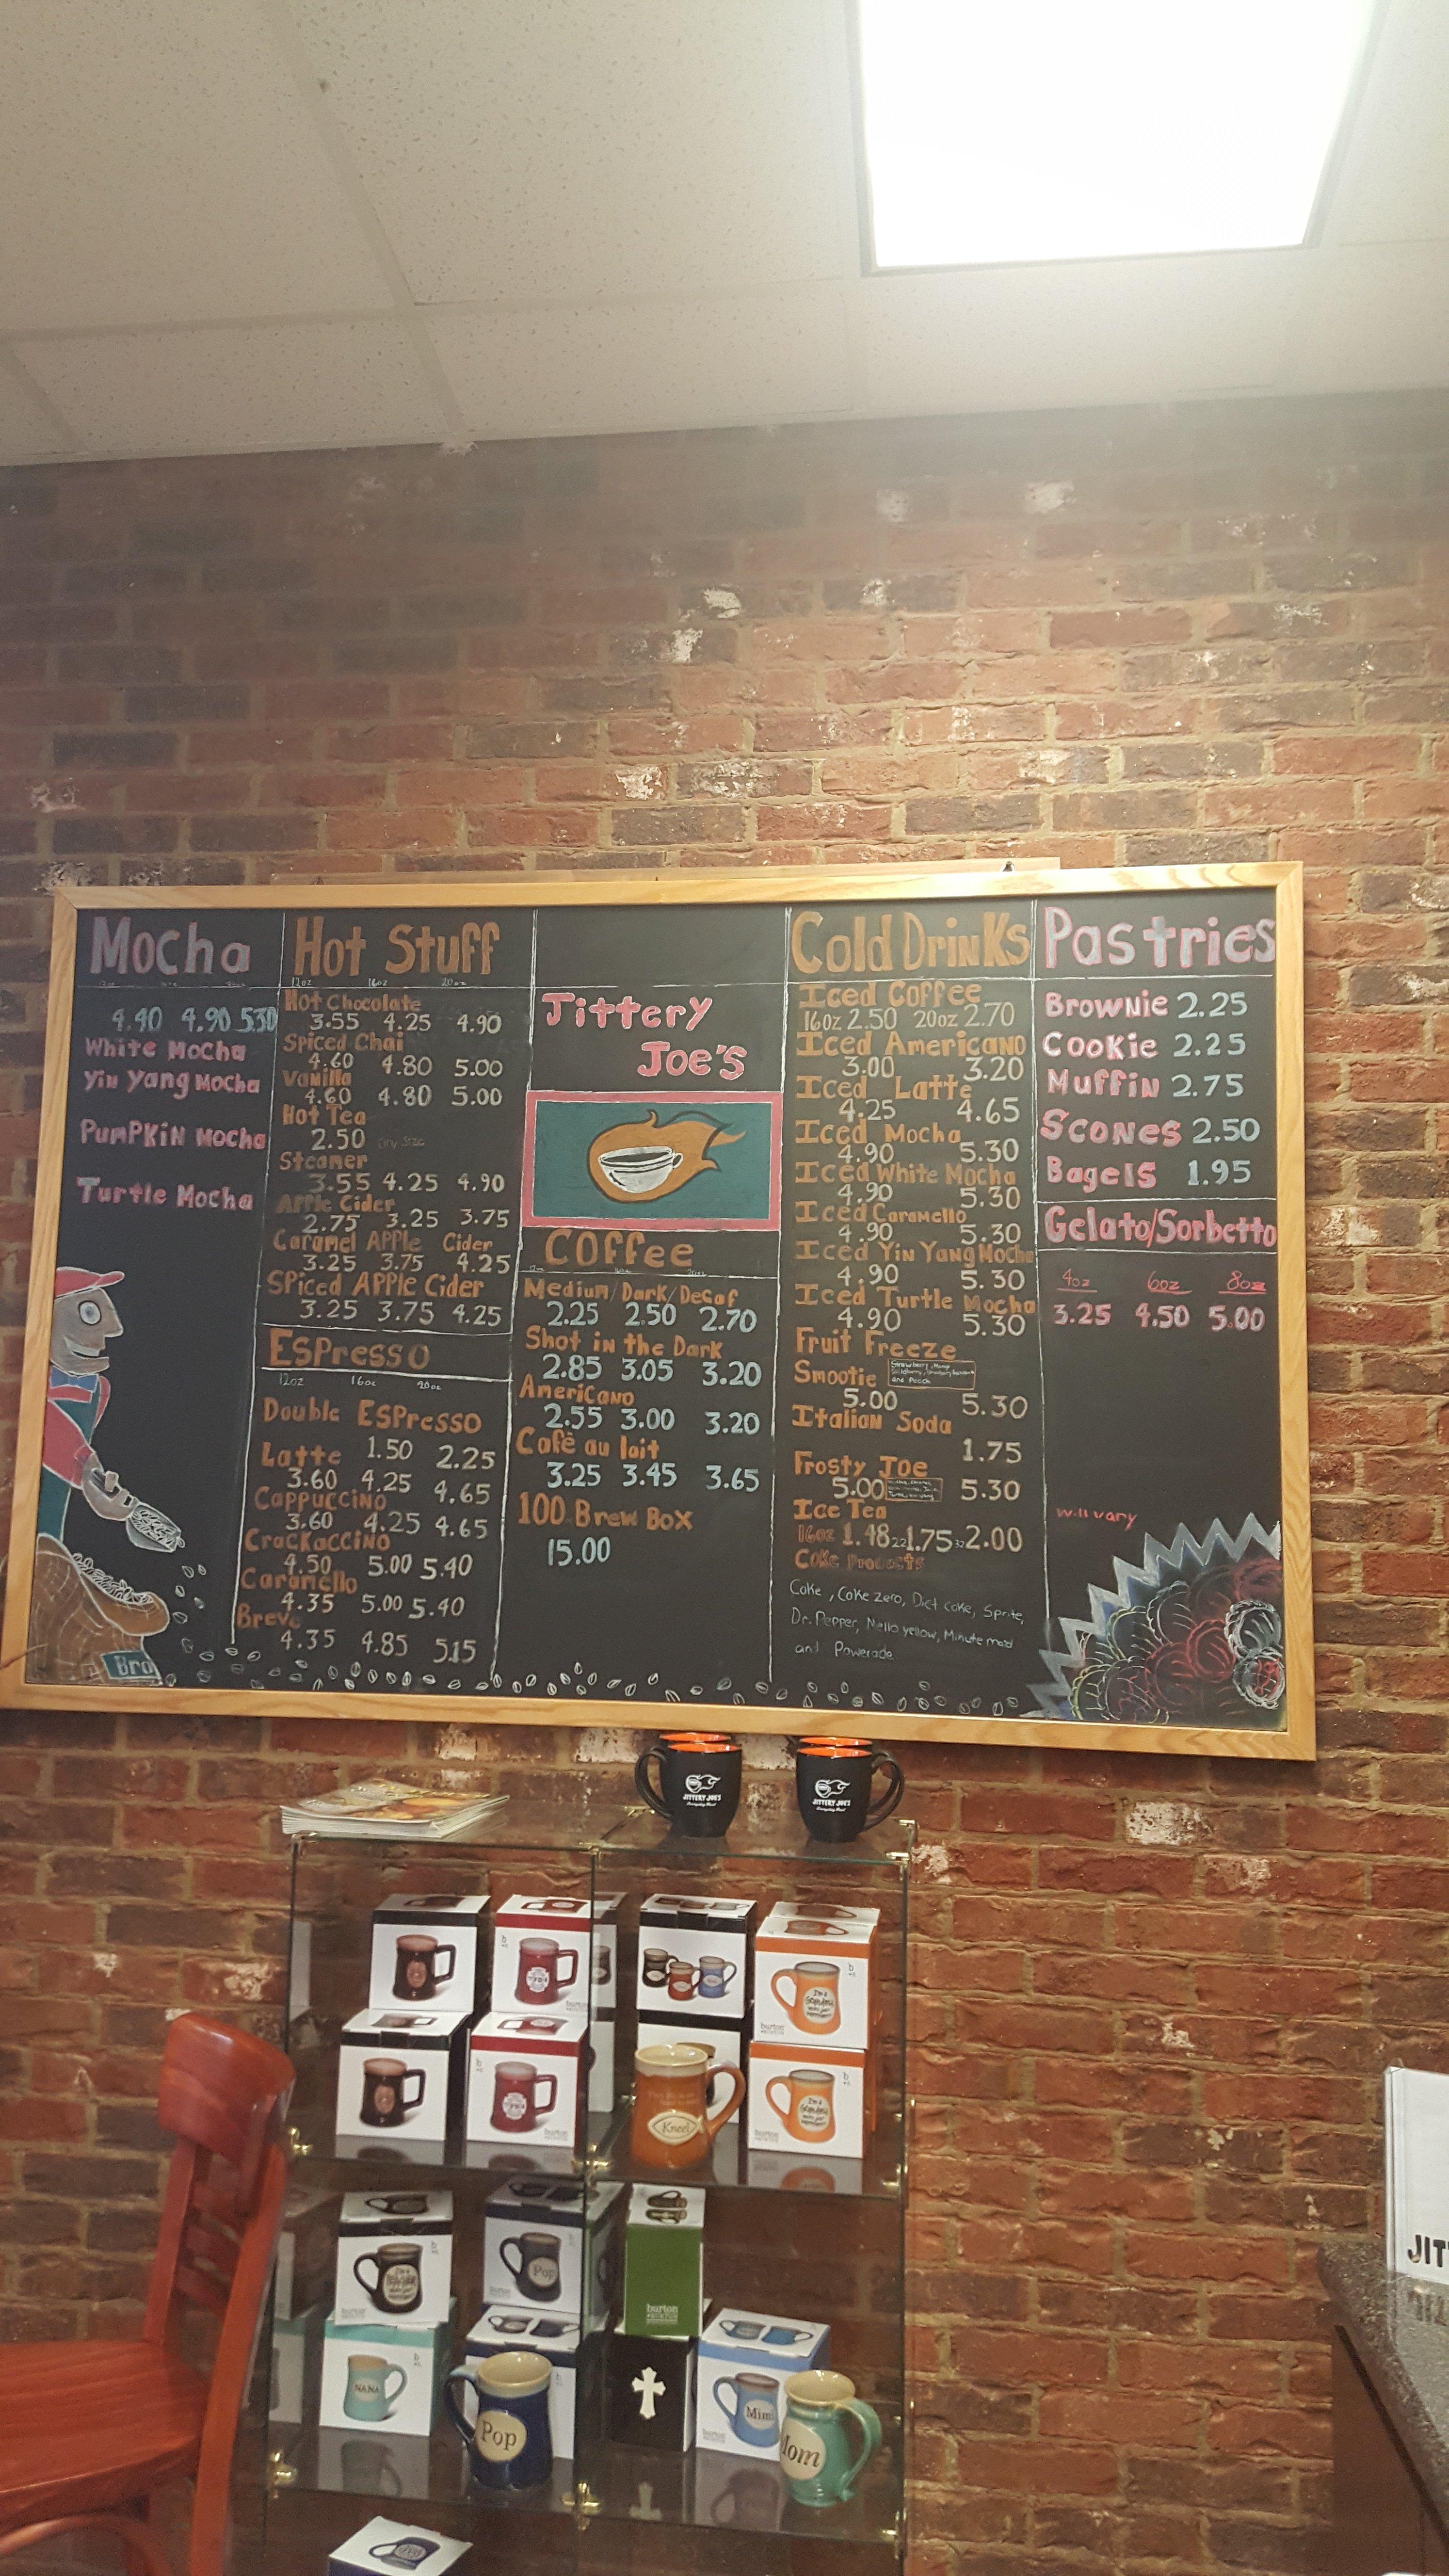 Mocha
4.40 4.90 5.30
White Mocha
Yin Yang Mocha
Pumpkin Mocha
Turtle Mocha
Bra
Hot Stuff
12oz 16oz 20oz
Hot Chocolate
3.55 4.25 4.90
Spiced Chai
4.60 4.80 5.00
Vanilla
4.60 4.80 5.00
Hot Tea
2.50 any size
Steamer
3.55 4.25 4.90
Apple Cider
2.75 3.25 3.75
Caramel Apple Cider
3.25 3.75 4.25
Spiced Apple Cider
3.25 3.75 4.25
Espresso
12oz 16oz 20oz
Double Espresso
1.50 2.25
Latte
3.60 4.25 4.65
Cappuccino
3.60 4.25 4.65
Crackaccino
4.50 5.00 5.40
Caramello
4.35 5.00 5.40
Breve
4.35 4.85 5.15
Jittery
Joe's
Coffee
Medium/Dark/Decaf
2.25 2.50 2.70
Shot in the Dark
2.85 3.05 3.20
Americano
2.55 3.00 3.20
Cafè au lait
3.25 3.45 3.65
100 Brew Box
15.00
Cold Drinks
Iced Coffee
16oz 2.50 20oz 2.70
Iced Americano
3.00 3.20
Iced Latte
4.25 4.65
Iced Mocha
4.90 5.30
Iced White Mocha
4.90 5.30
Iced Caramello
4.90 5.30
Iced Yin Yang Mocha
4.90 5.30
Iced Turtle Mocha
4.90 5.30
Fruit Freeze
Smootie
Strawberry, Mango
and Peach
5.00 5.30
Italian Soda
1.75
Frosty Joe
5.00 5.30
Ice Tea
16oz 1.48 22 1.75 32 2.00
Coke Products
Coke, Coke zero, Diet coke, Sprite,
Dr. Pepper, Mello yellow, Minute maid
and Powerade
Pastries
Brownie 2.25
Cookie 2.25
Muffin 2.75
Scones 2.50
Bagels 1.95
Gelato/Sorbetto
4oz 6oz 8oz
3.25 4.50 5.00
will vary
JITTERY JOE'S
JITTERY JOE'S
burton
burton
burton
burton
Kneel
Pop
burton
NANA
Pop
Mimi
Mom
JIT